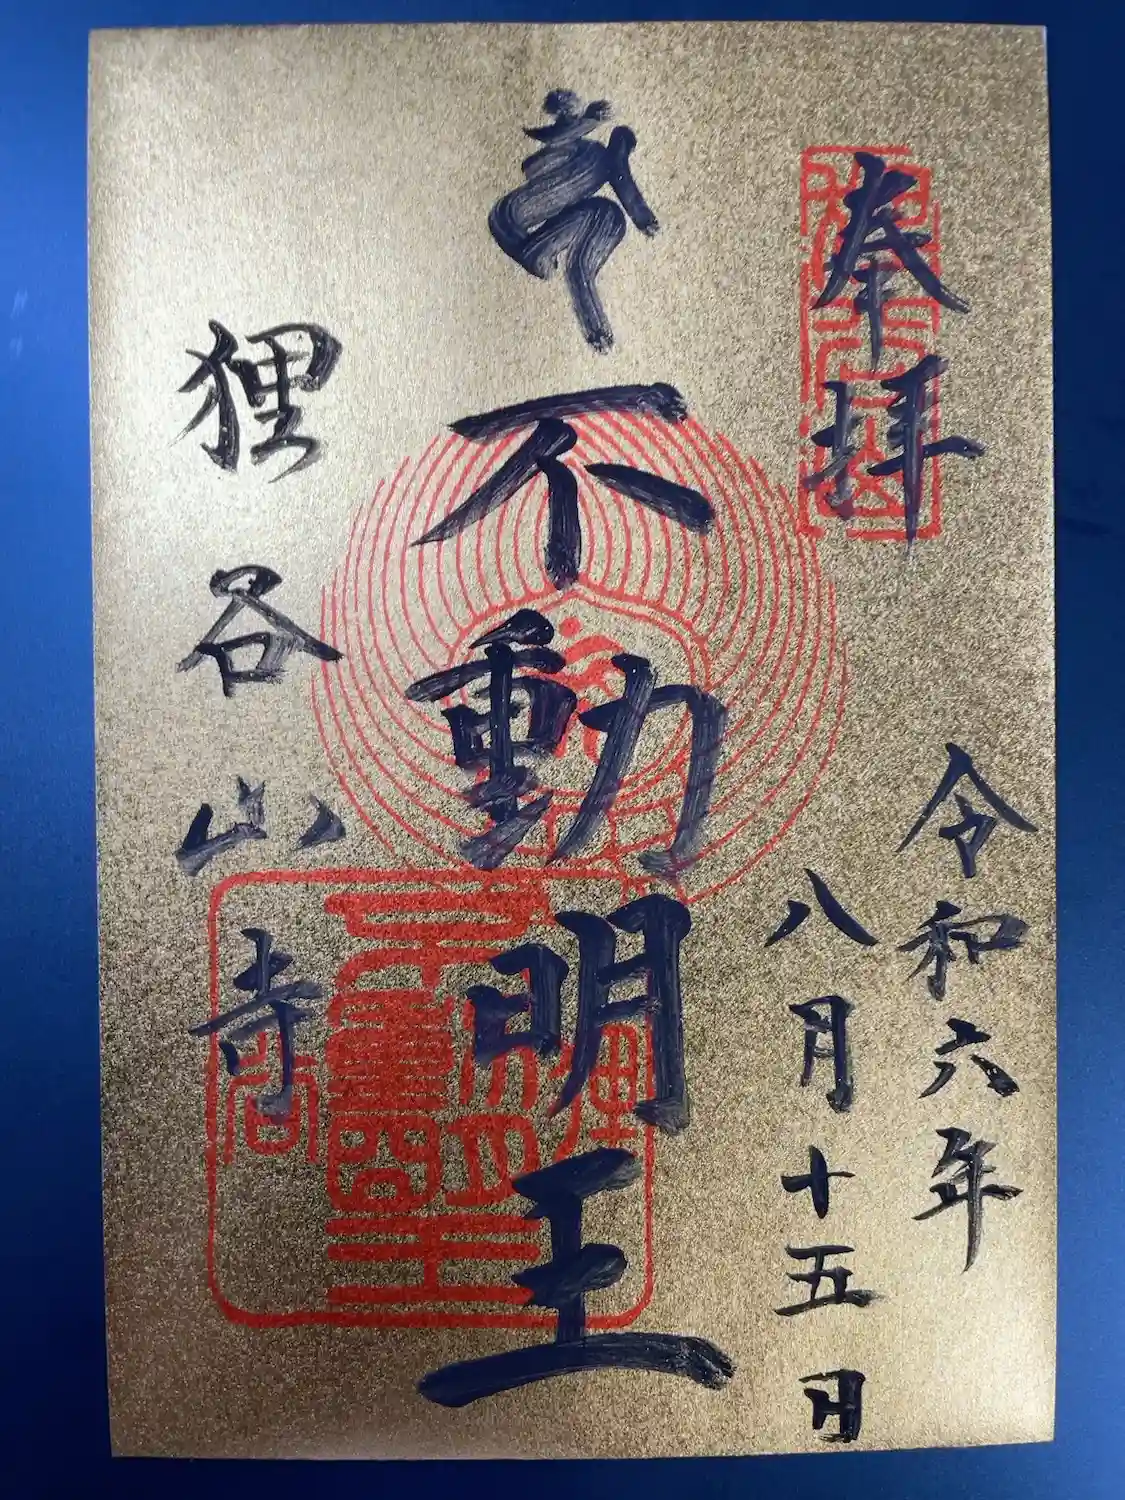 奉拝
令和六年
八月十五日
不動明王
狸谷山寺